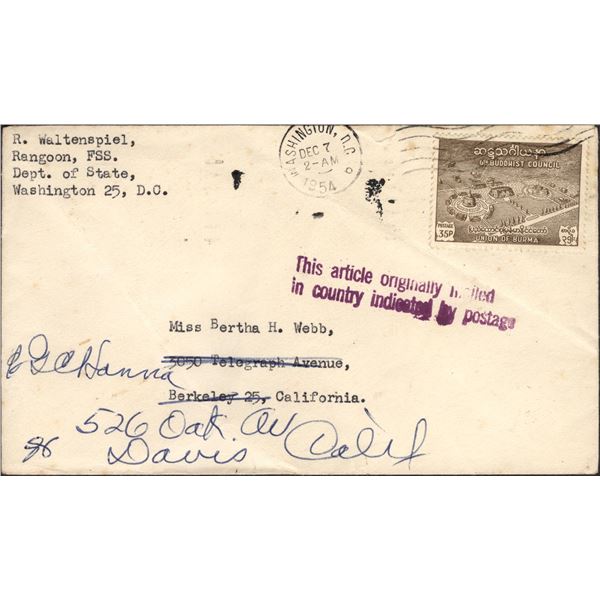 R. Waltenspiel,
Rangoon, FSS.
Dept. of State,
Washington 25, D.C.
WASHINGTON, D.C.
DEC 7
2-AM
1954
ဆဋ္ဌသင်္ဂါယနာ
6th BUDDHIST COUNCIL
POSTAGE
35P
UNION OF BURMA
This article originally mailed
in country indicated by postage
Miss Bertha H. Webb,
3050 Telegraph Avenue,
Berkeley 25, California.
Hanna
526 Oak Av
Davis Calif